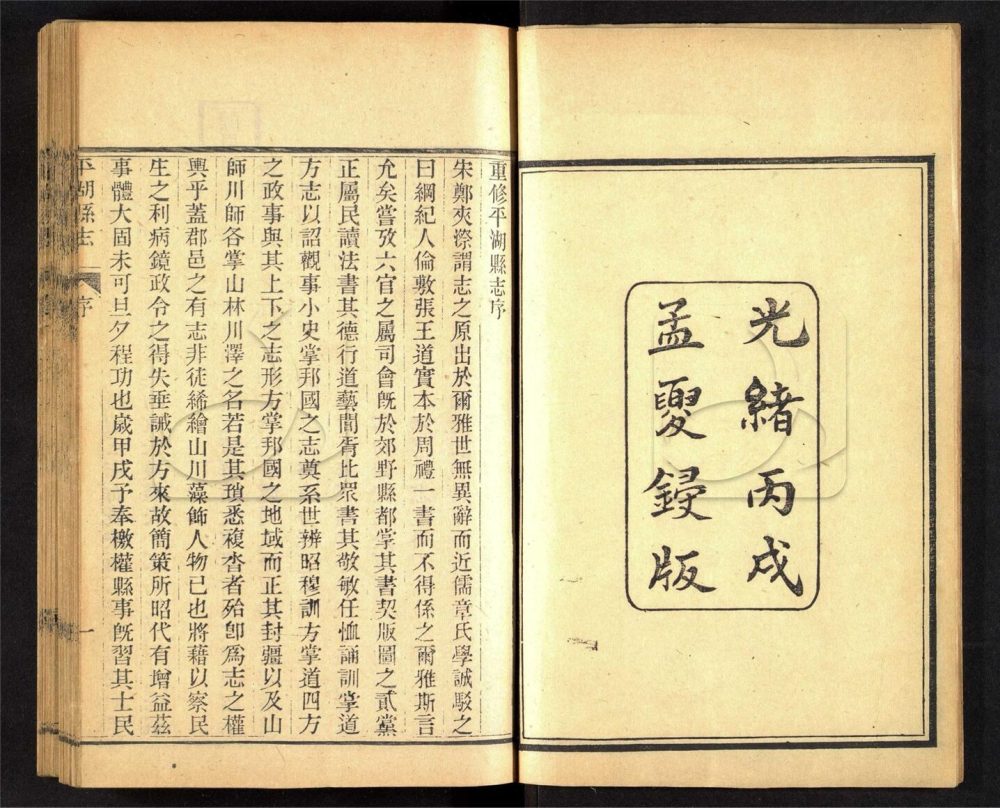 光緒丙戌
孟夏鋟版
重修平湖縣志序
宋鄭夾漈謂志之原出於爾雅世無異辭而近儒章氏學誠駁之
曰綱紀人倫敷張王道實本於周禮一書而不得係之爾雅斯言
允矣嘗攷六官之屬司會旣於郊野縣都掌其書契版圖之貳黨
正屬民讀法書其德行道藝閭胥比眾書其敬敏任恤誦訓掌道
方志以詔觀事小史掌邦國之志奠系世辨昭穆訓方掌道四方
之政事與其上下之志形方掌邦國之地域而正其封疆以及山
師川師各掌山林川澤之名若是其瑣悉複沓者殆卽爲志之權
輿乎蓋郡邑之有志非徒絺繪山川藻飾人物已也將藉以察民
生之利病鏡政令之得失垂誡於方來故簡策所昭代有增益茲
事體大固未可旦夕程功也歲甲戌予奉檄權縣事旣習其士民
平湖縣志 序 一